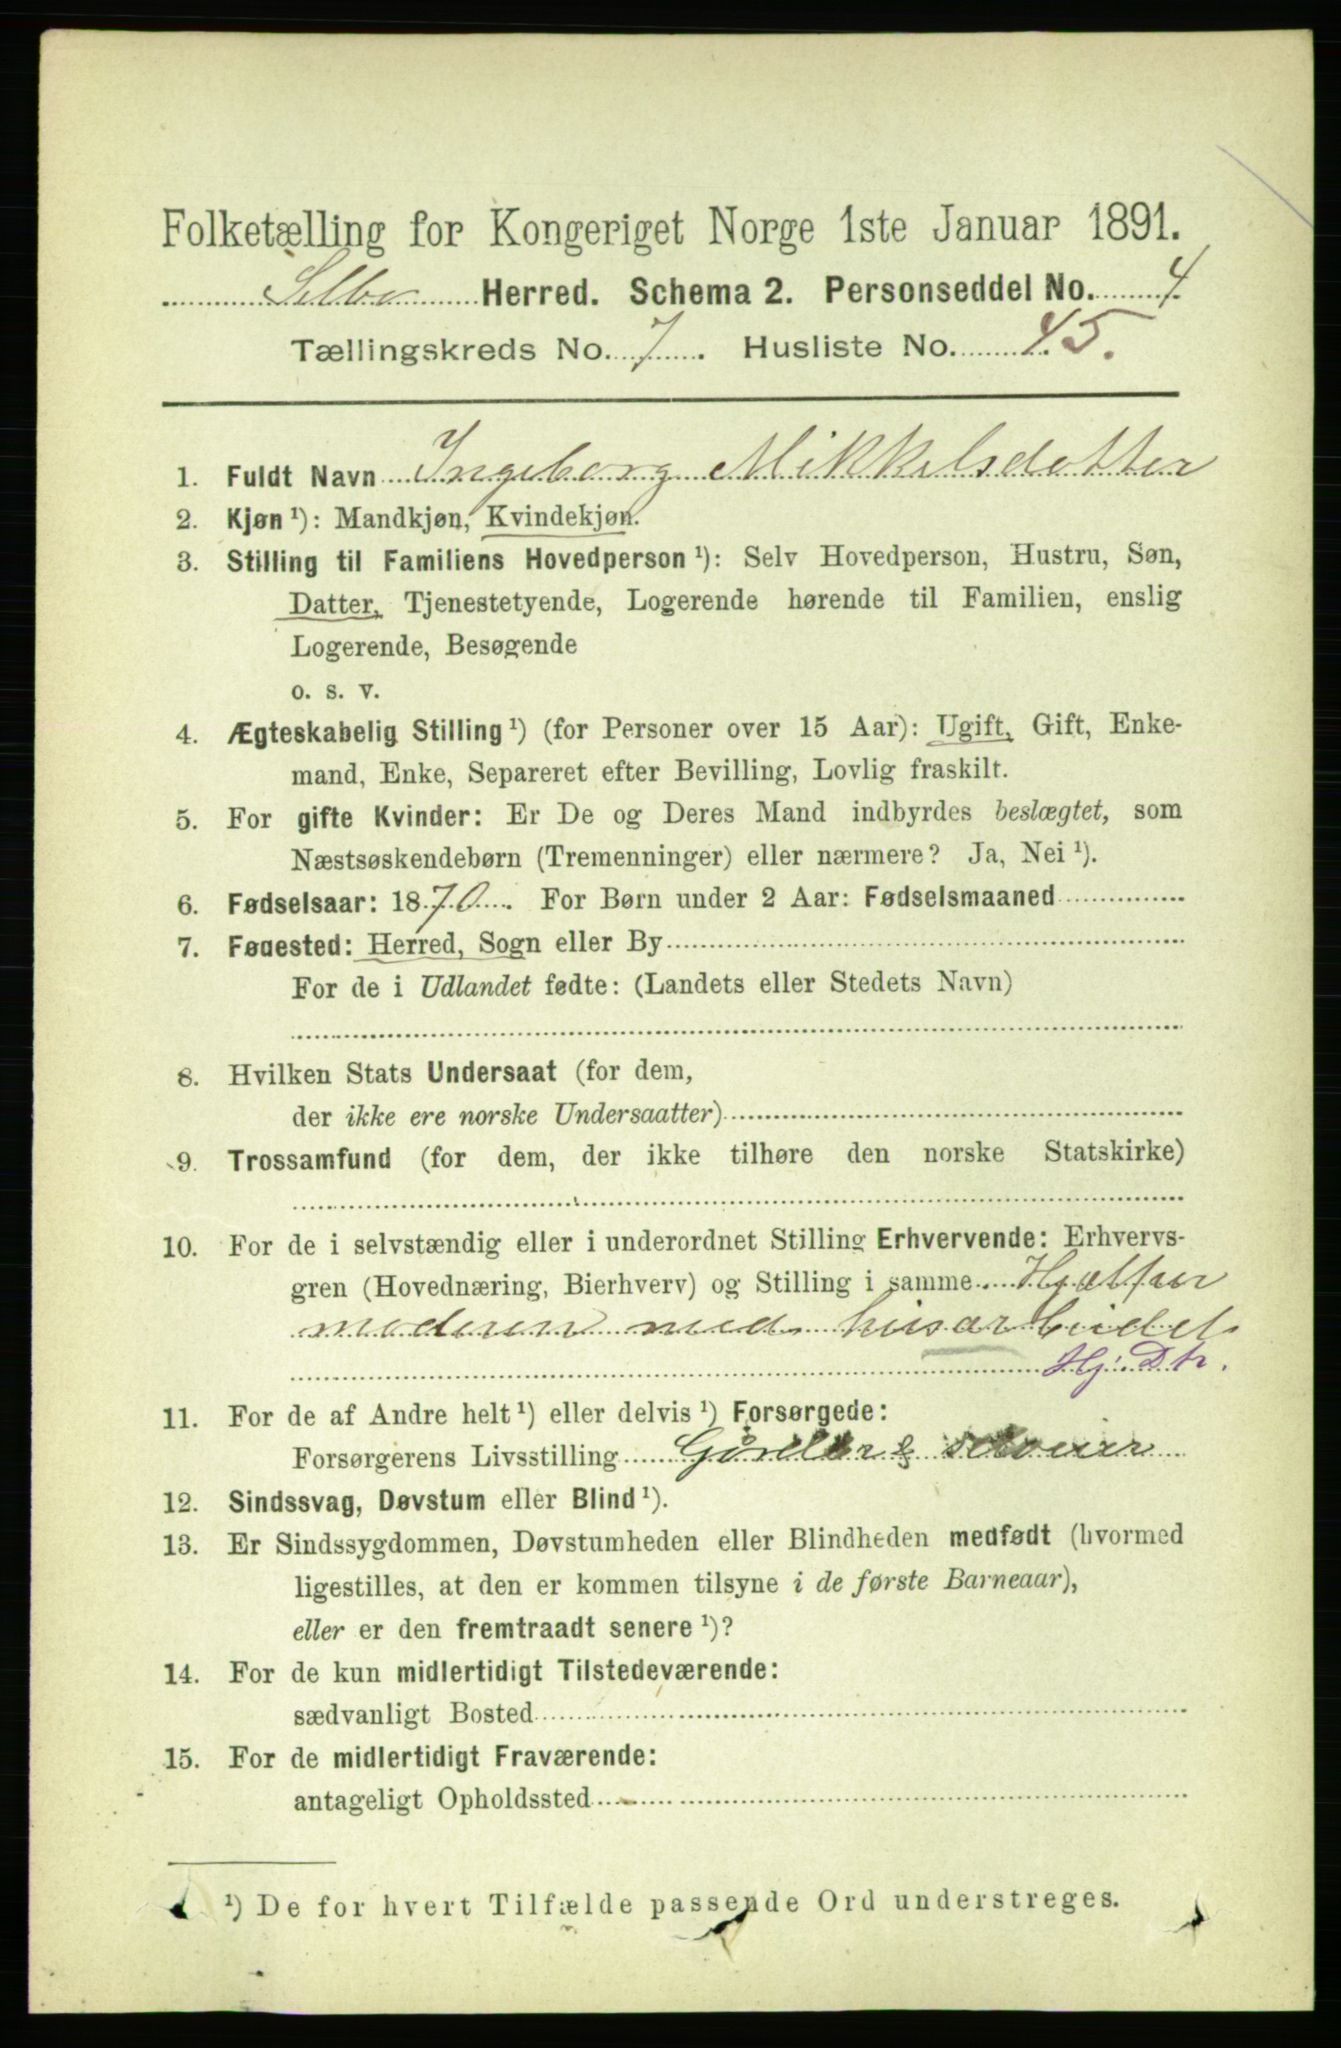 Folketælling for Kongeriget Norge 1ste Januar 1891.
Selbu Herred. Schema 2. Personseddel No. 4.
Tællingskreds No. 7. Husliste No. 45.
1. Fuldt Navn Ingeborg Mikkelsdotter
2. Kjøn ¹): Mandkjøn, Kvindekjøn.
3. Stilling til Familiens Hovedperson ¹): Selv Hovedperson, Hustru, Søn,
Datter, Tjenestetyende, Logerende hørende til Familien, enslig
Logerende, Besøgende
o. s. v.
4. Ægteskabelig Stilling ¹) (for Personer over 15 Aar): Ugift, Gift, Enke-
mand, Enke, Separeret efter Bevilling, Lovlig fraskilt.
5. For gifte Kvinder: Er De og Deres Mand indbyrdes beslægtet, som
Næstsøskendebørn (Tremenninger) eller nærmere? Ja, Nei ¹).
6. Fødselsaar: 1870. For Børn under 2 Aar: Fødselsmaaned
7. Fødested: Herred, Sogn eller By
For de i Udlandet fødte: (Landets eller Stedets Navn)
8. Hvilken Stats Undersaat (for dem,
der ikke ere norske Undersaatter)
9. Trossamfund (for dem, der ikke tilhøre den norske Statskirke)
10. For de i selvstændig eller i underordnet Stilling Erhvervende: Erhvervs-
gren (Hovednæring, Bierhverv) og Stilling i samme Hjælper
moderen med husarbeidet
Hj. Dtr.
11. For de af Andre helt ¹) eller delvis ¹) Forsørgede:
Forsørgerens Livsstilling
12. Sindssvag, Døvstum eller Blind ¹).
13. Er Sindssygdommen, Døvstumheden eller Blindheden medfødt (hvormed
ligestilles, at den er kommen tilsyne i de første Barneaar),
eller er den fremtraadt senere ¹)?
14. For de kun midlertidigt Tilstedeværende:
sædvanligt Bosted
15. For de midlertidigt Fraværende:
antageligt Opholdssted
¹) De for hvert Tilfælde passende Ord understreges.